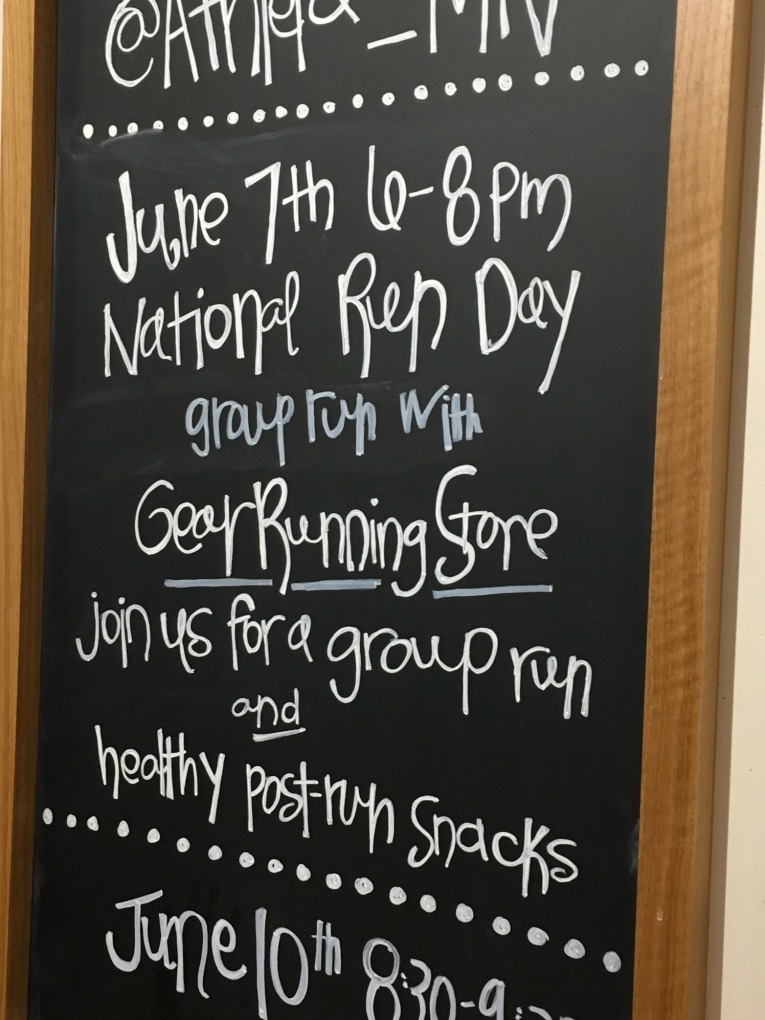 @Athleta_MN
June 7th 6-8pm
National Run Day
group run with
Gear Running Store
join us for a group run
and
healthy post-run snacks
June 10th 8:30-9:30